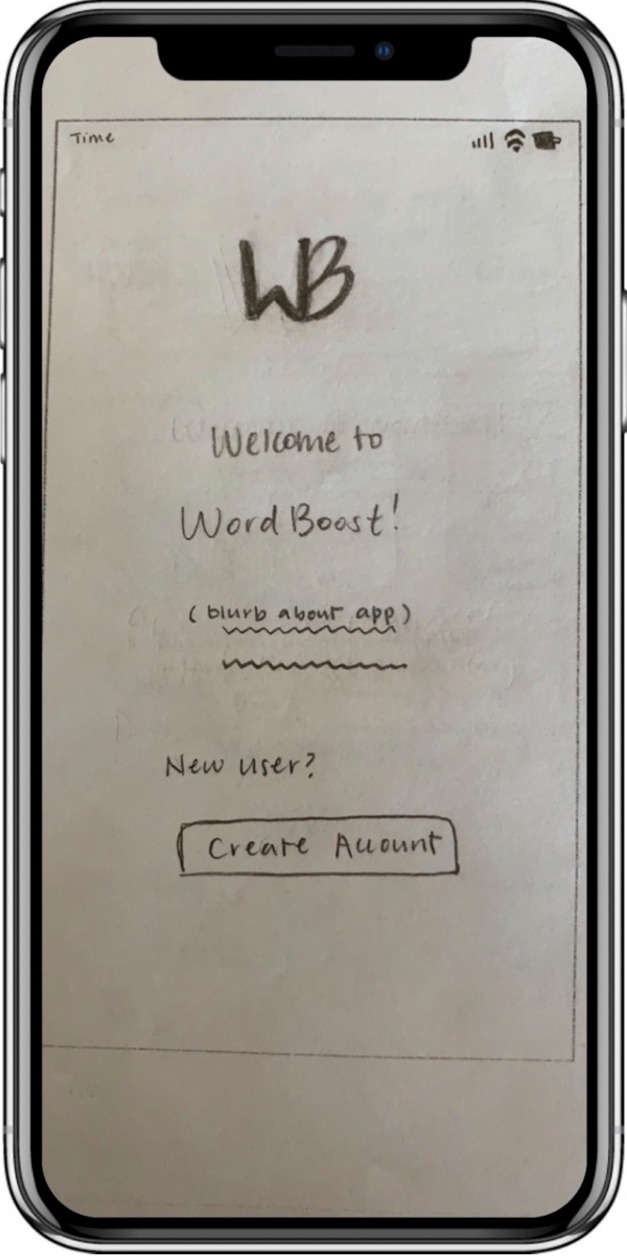 Time
WB
Welcome to
Word Boost!
(blurb about app)
New user?
Create Account